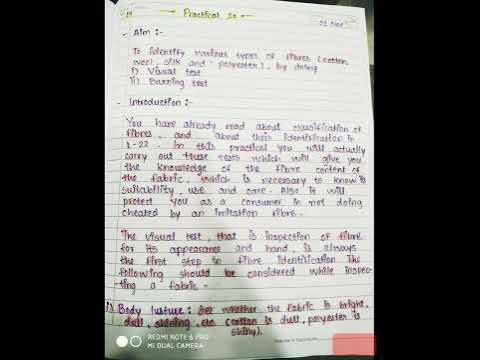 Practical 21
21 Nov
- Aim :-
To identify various types of fibres (cotton,
wool, silk and polyester), by doing
i) Visual test
ii) Burning test
- Introduction :-
You have already read about classification of
fibres, and about this identification in
L-22. In this practical you will actually
carry out these tests which will give you
the knowledge of the fibre content of
the fabric, which is necessary to know is
suitability, use and care. Also it will
protect you as a consumer in not doing
cheated by an imitation fibre.
The visual test, that is inspection of fibre
for its appearance and hand, is always
the first step in fibre identification. The
following should be considered while inspec-
ting a fabric -
i) Body lusture : See whether the fabric is bright,
dull, shining, etc (cotton is dull, polyester is
shiny).
Teacher's Signature
REDMI NOTE 6 PRO
MI DUAL CAMERA